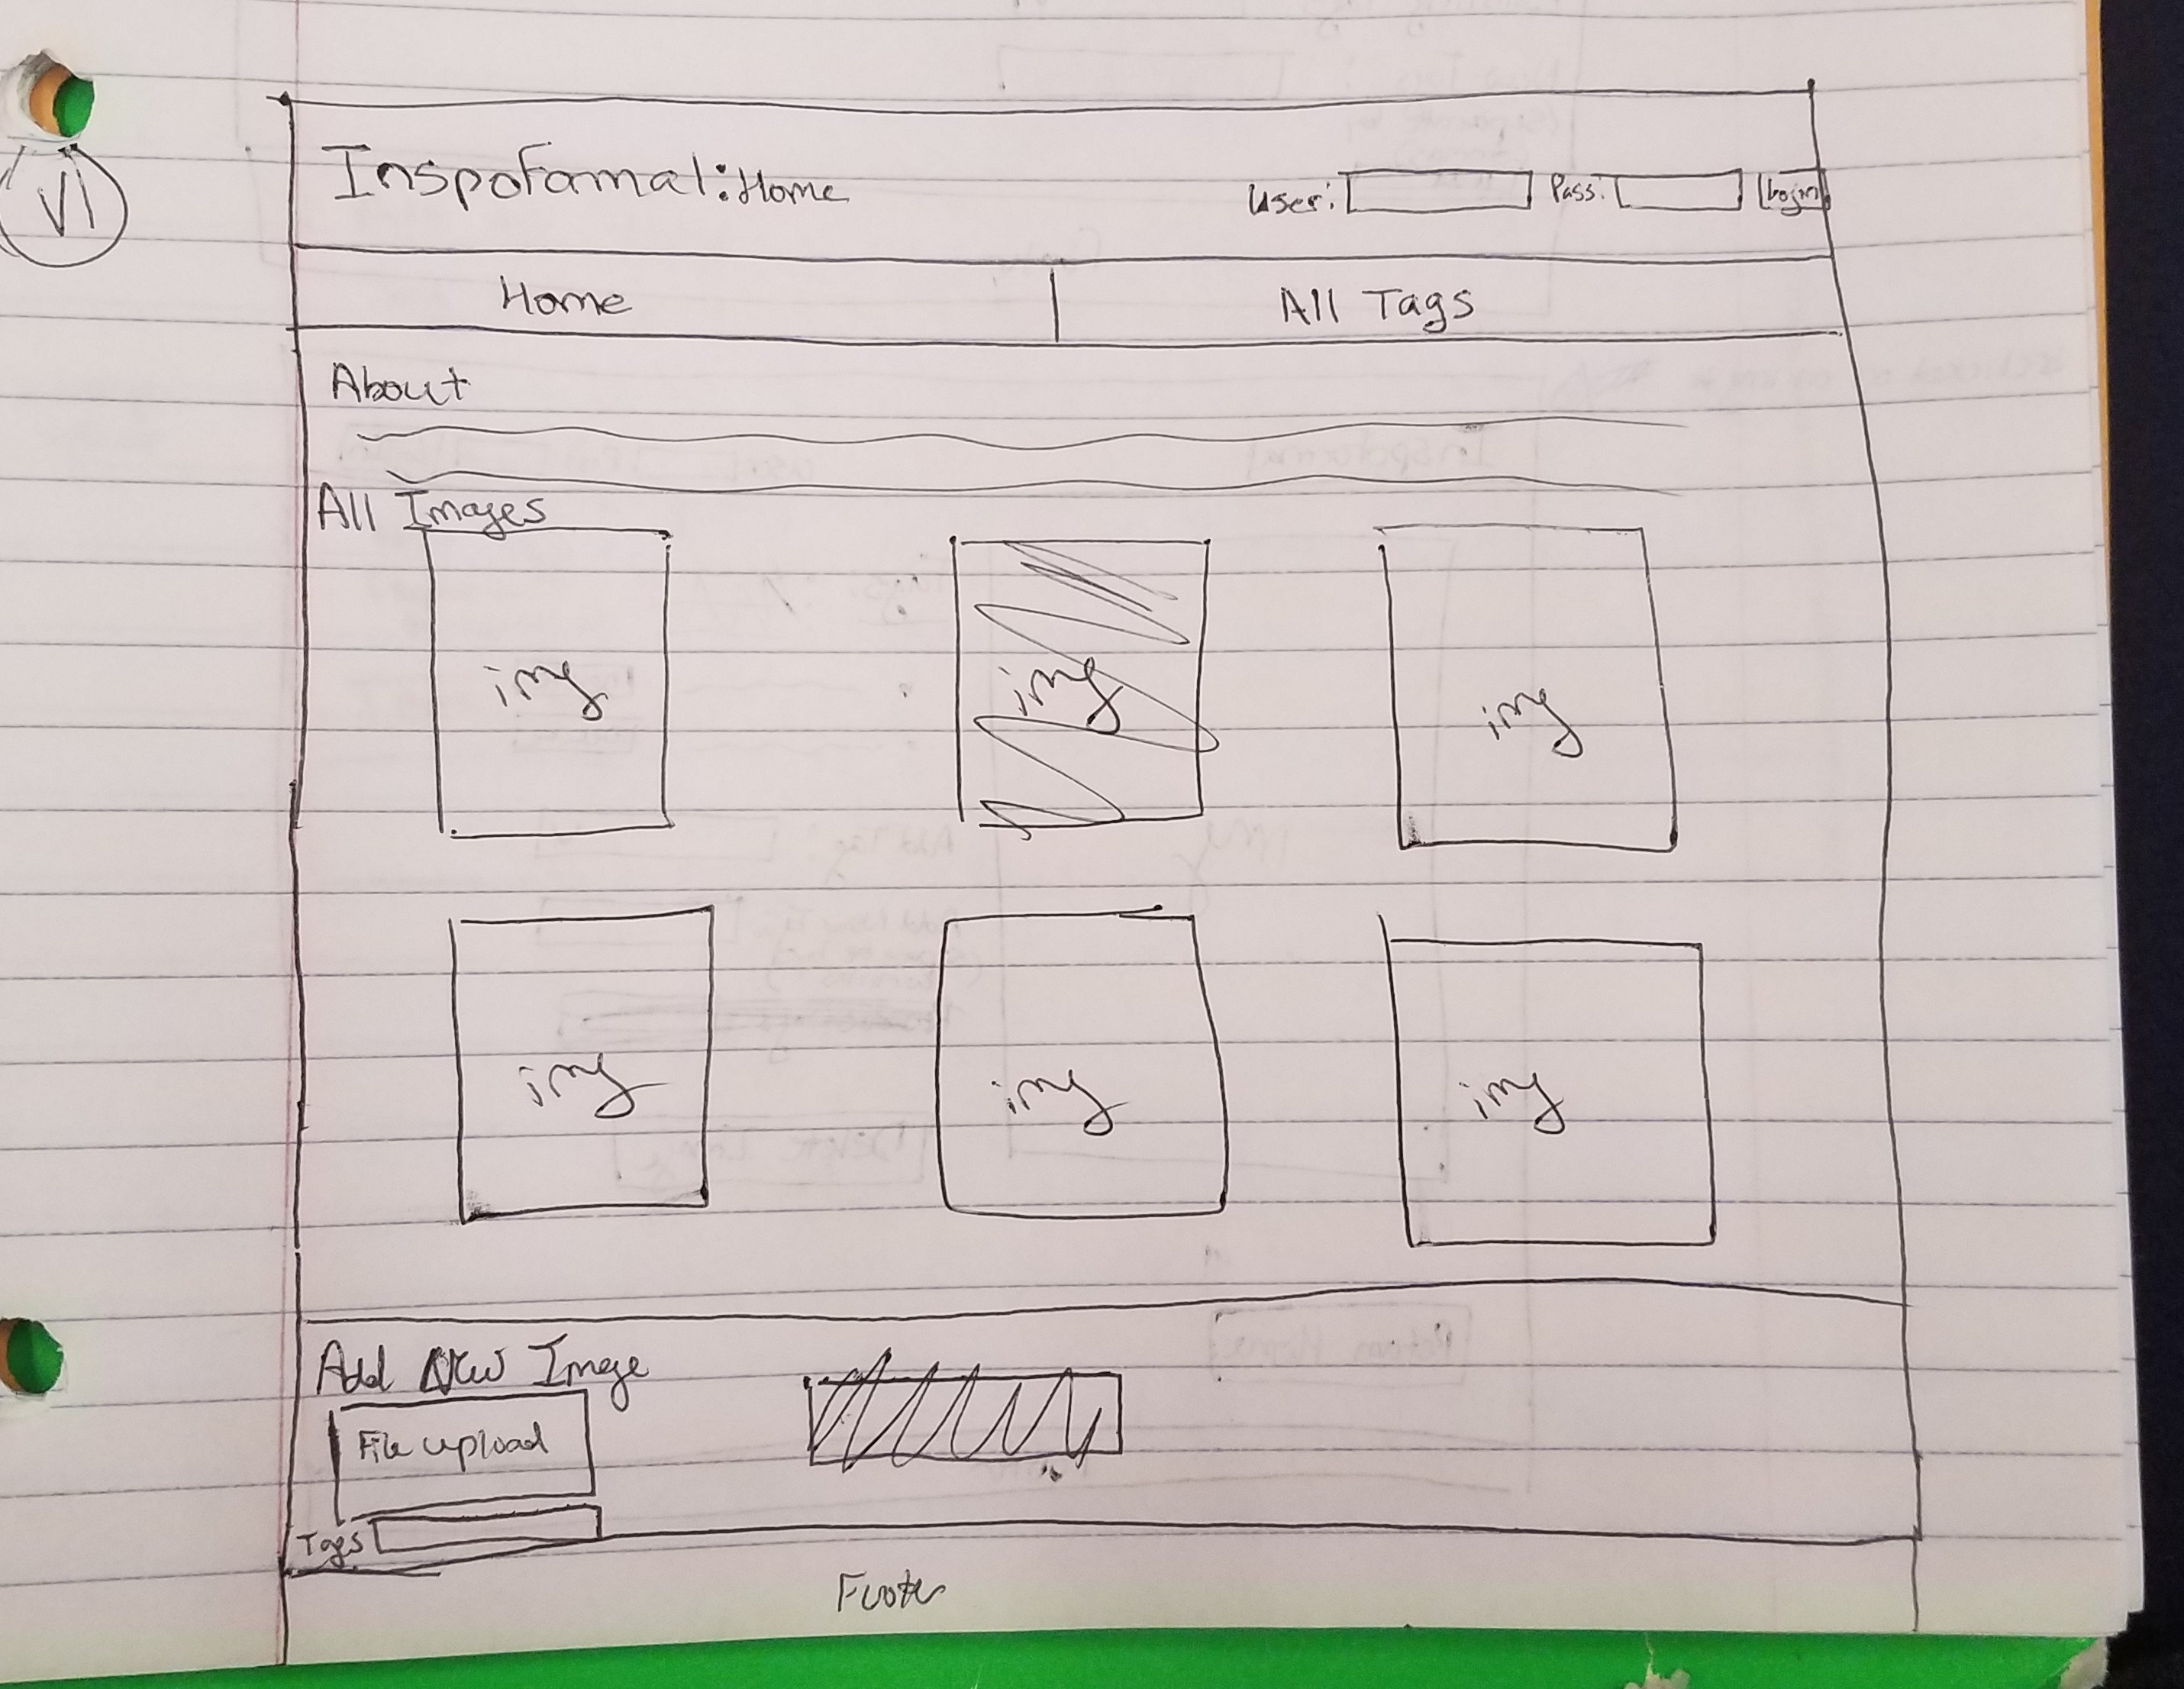 V1
Inspoformal: Home
User: Pass: Login
Home All Tags
About
All Images
img img img
img img img
Add New Image
File upload
Tags
Footer